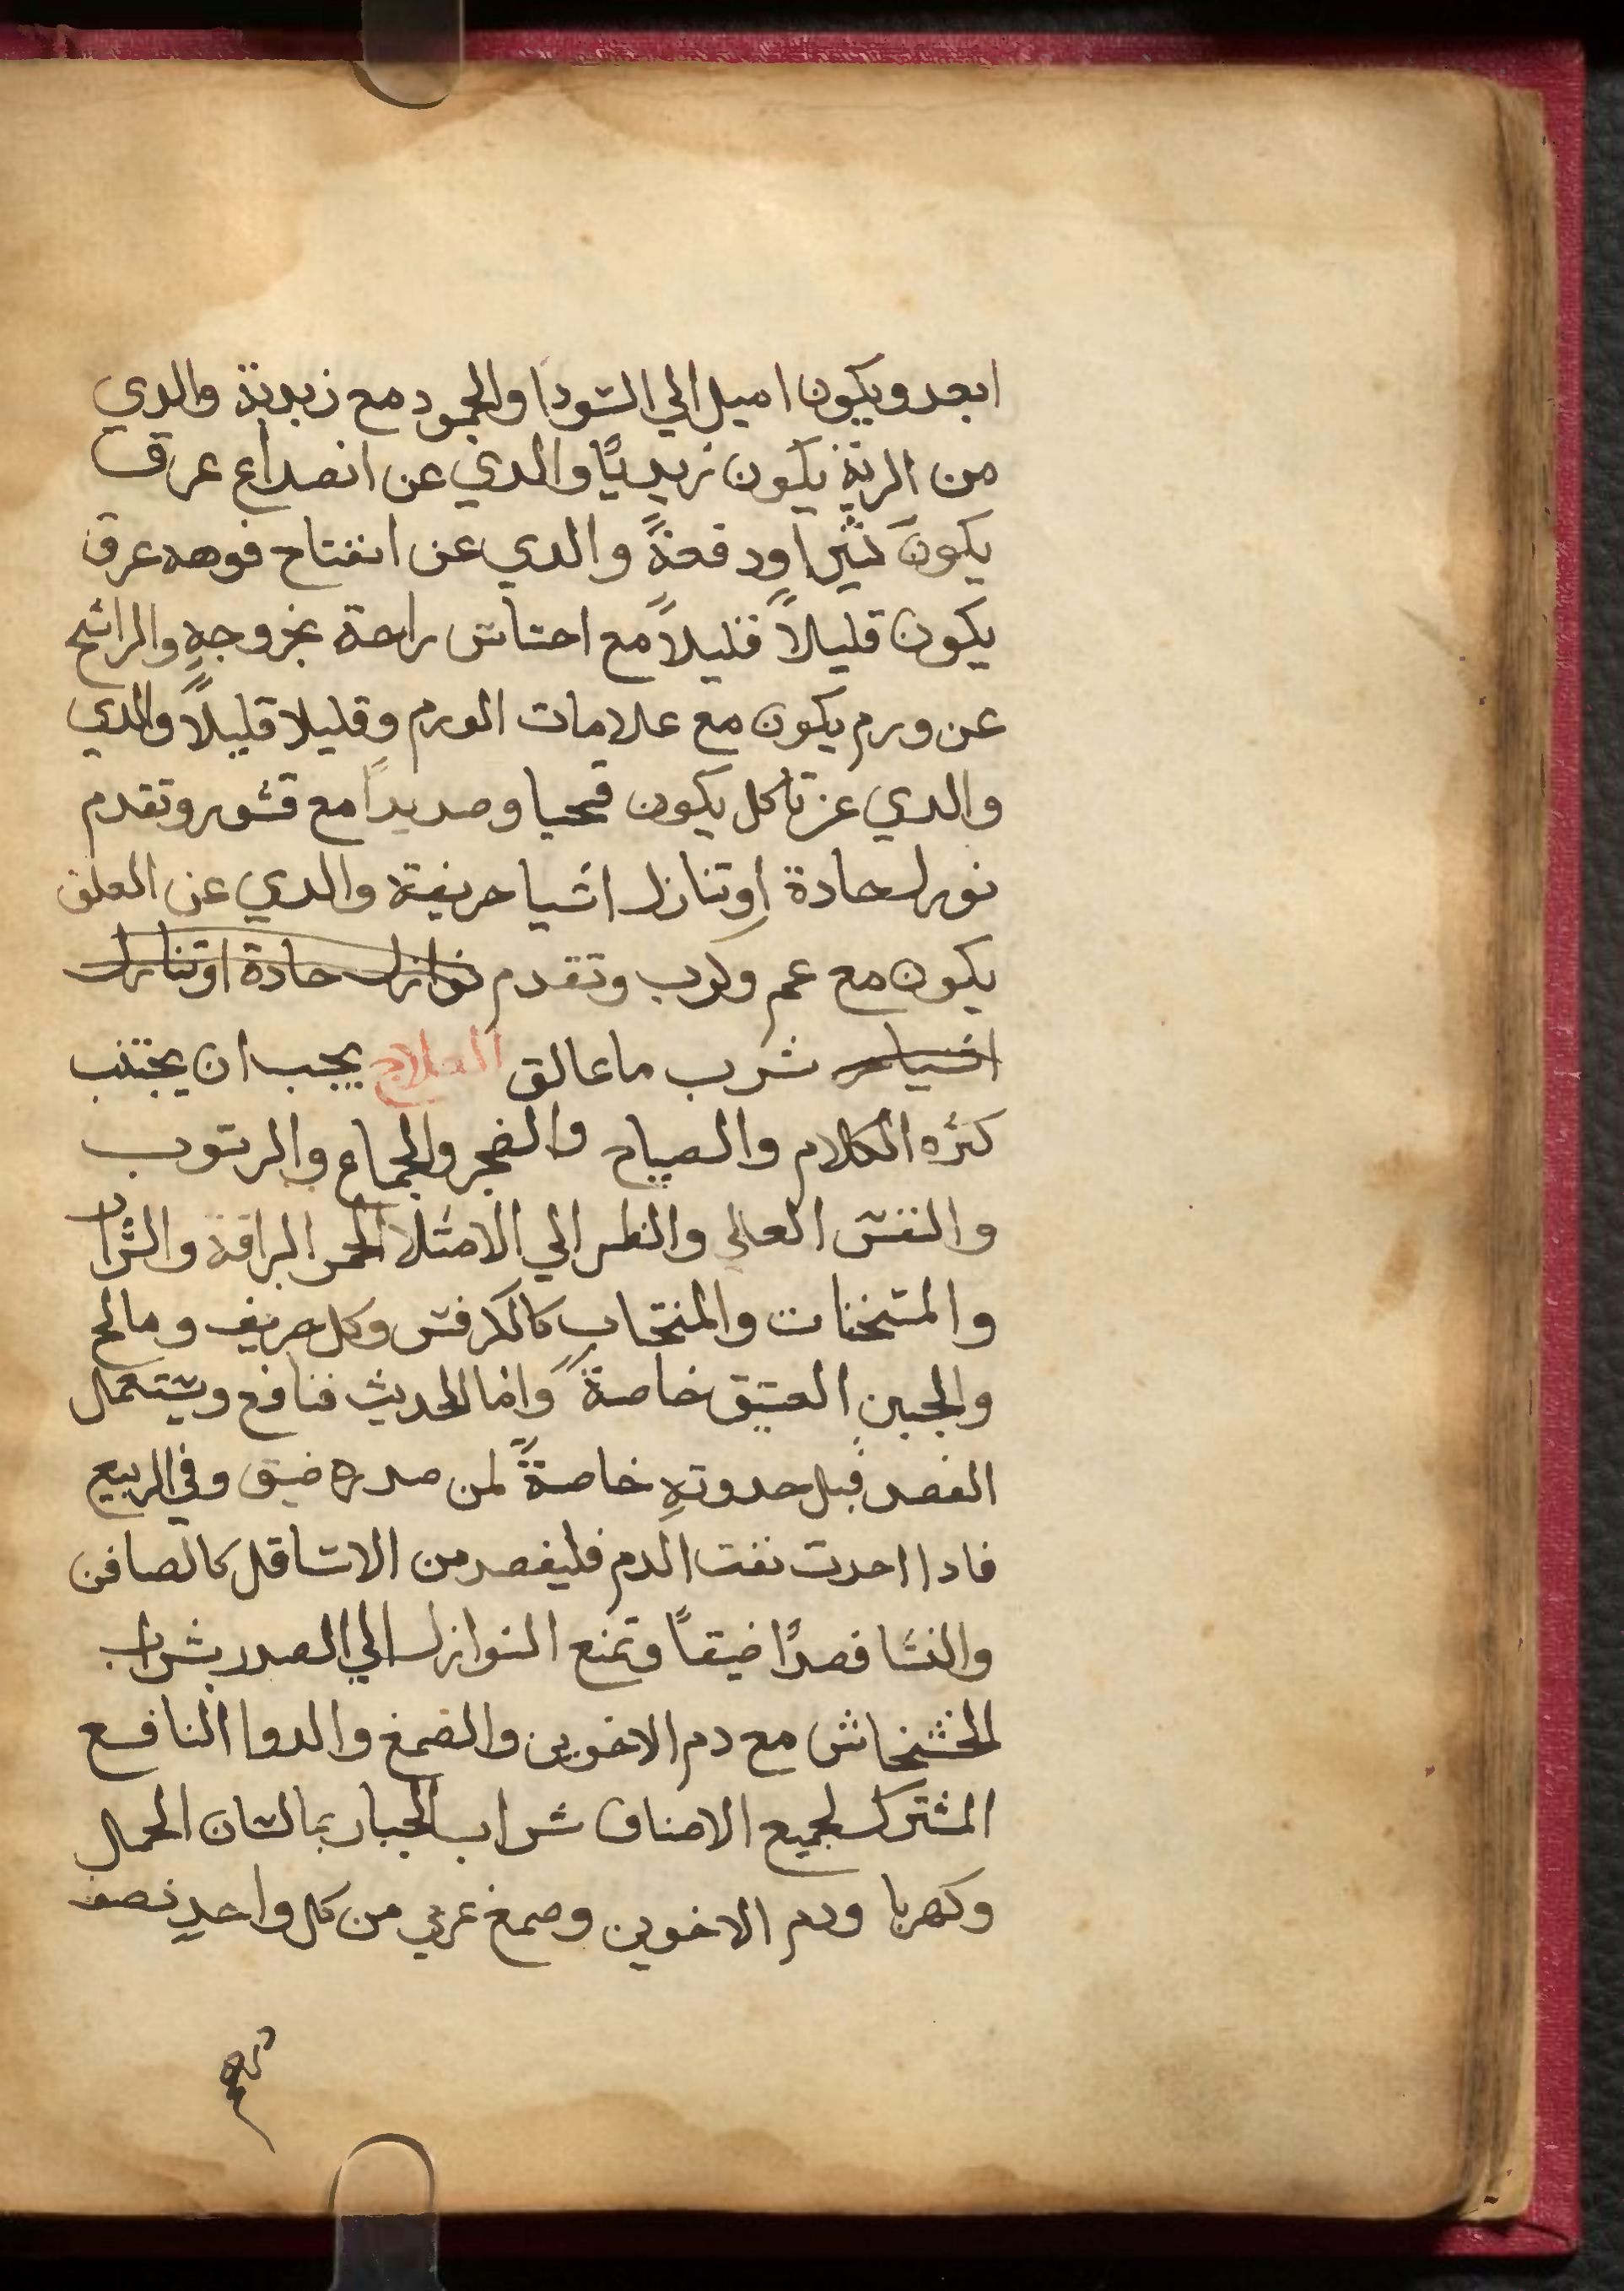 ابعد ويكون اميل الي السودا والجمود مع زبدية والدي
من الرئة يكون زبديًا والدي عن انصداع عرق
يكون كثيرا ودفعةً والدي عن انفتاح فوهه عرق
يكون قليلاً قليلاً مع احساس راحة بخروجهِ والراشح
عن ورم يكون مع علامات الورم وقليلا قليلاً والدي
والدي عن تاكل يكون قحيا وصديدًا مع قشور وتقدم
نورل حادة او تنازل اشيا حريفة والدي عن العلق
يكون مع غم وكرب وتقدم نوازل حادة او تنازل
اشيا حر شرب ما عالق العلاج يجب ان يجتنب
كثره الكلام والصياح والضجر والجماع والرتوب
والنفس العالي والنظر الي الامثلا الحمر البراقة والشراب
والمسخنات والمفتحات كالكرفس وكل حريف ومالح
والجبن العتيق خاصةً واما الحديث فنافع ويستعمل
الفصد قبل حدوتهِ خاصةً لمن صدره ضيق وفي الربيع
فادا احدت نفت الدم فليفصد من الاسافل كالصافن
والنسا فصدًا ضيقاً وتمنع النوازل الي الصدر بشراب
الخشخاش مع دم الاخوين والصمغ والدوا النافع
المشترك لجميع الاصناف شراب الجبار بما لسان الحمل
وكهربا ودم الاخوين وصمغ عربي من كل واحدٍ نصف